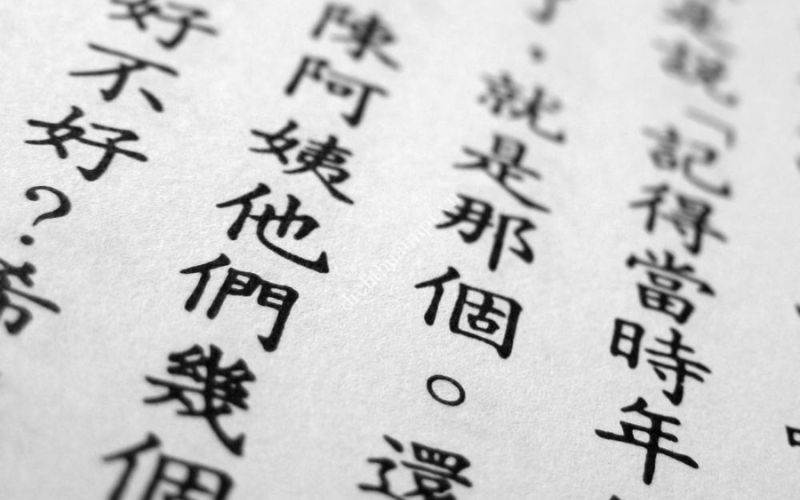 是說「記得當時年
、就是那個。還
陳阿姨他們幾個
好不好？